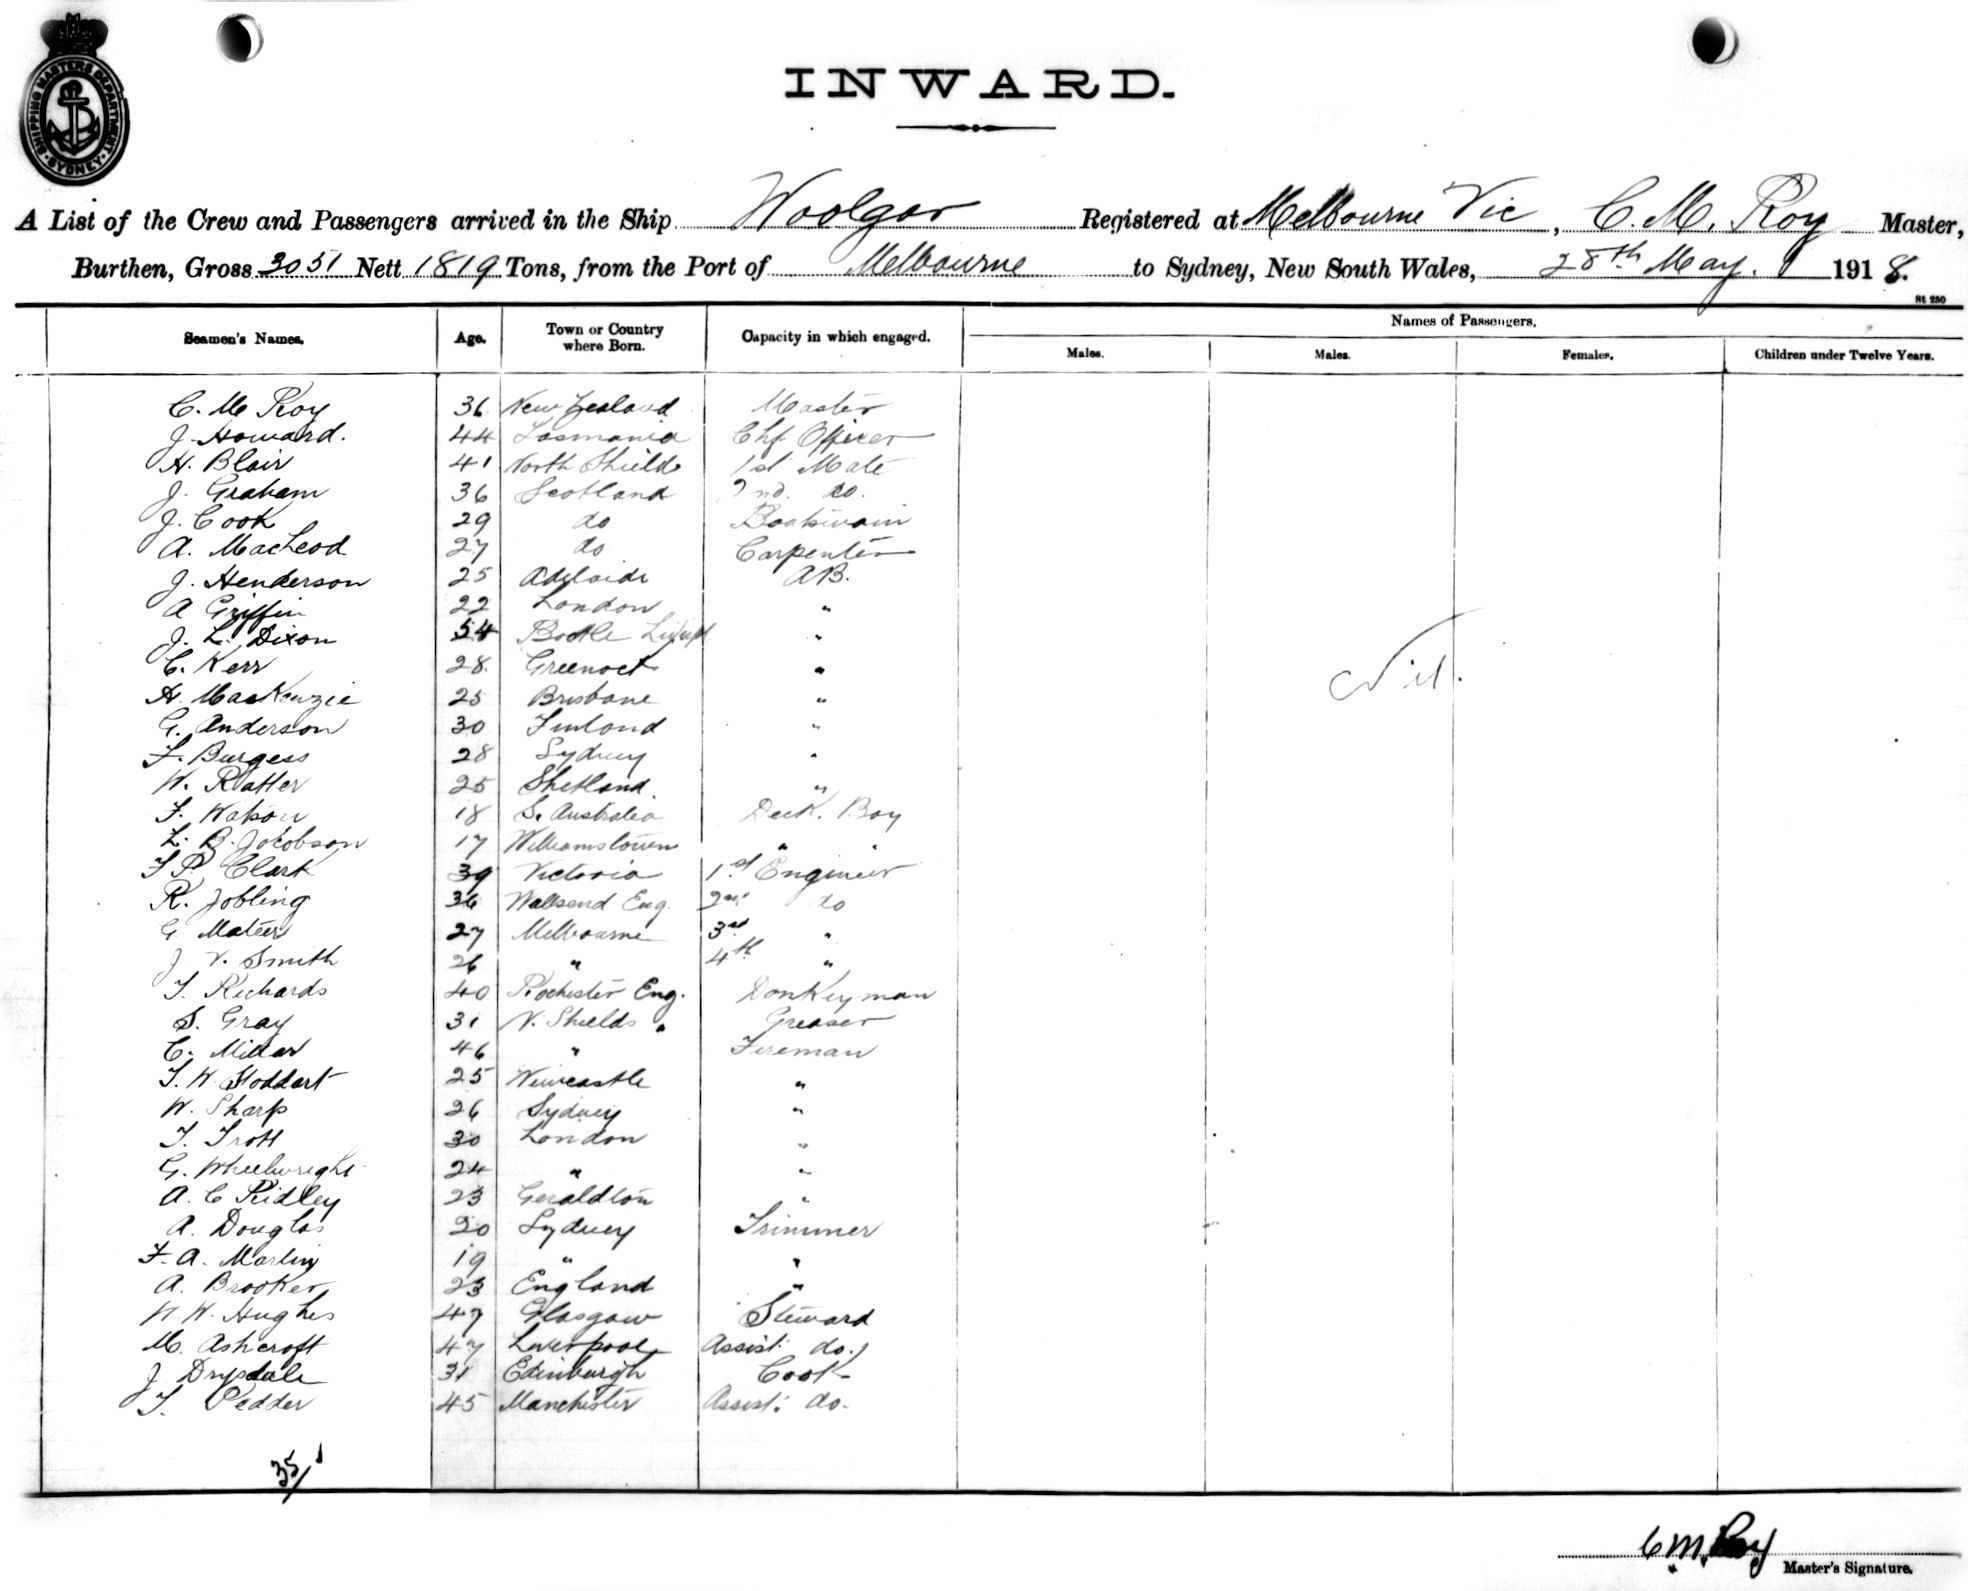 SHIPPING MASTERS DEPARTMENT SYDNEY
INWARD.
A List of the Crew and Passengers arrived in the Ship Woolgar Registered at Melbourne Vic, C. M. Roy Master,
Burthen, Gross 3051 Nett 1819 Tons, from the Port of Melbourne to Sydney, New South Wales, 28th May. 1918.
St 250
Seamen's Names. Age. Town or Country where Born. Capacity in which engaged. Names of Passengers.
Males. Males. Females. Children under Twelve Years.
C. M Roy 36 New Zealand Master
J. Howard. 44 Tasmania Chf Officer
H. Blair 41 North Shields 1st Mate
J. Graham 36 Scotland 2nd. do.
J. Cook 29 do Boatswain
A. MacLeod 27 do Carpenter
J. Henderson 25 Adelaide AB.
A Griffin 22 London "
J. L. Dixon 54 Bootle "
C. Kerr 28 Greenock "
H. MacKenzie 25 Brisbane "
Nil.
G. Anderson 30 Finland "
F. Burgess 28 Sydney "
W. Ratter 25 Shetland "
F. Watson 18 S. Australia Deck. Boy
L. B. Jacobson 17 Williamstown " "
F P. Clark 39 Victoria 1st Engineer
R. Jobling 36 Wallsend Eng. 2nd do
G Mateer 27 Melbourne 3rd "
J V. Smith 26 " 4th "
T. Richards 40 Rochester Eng. Donkeyman
S. Gray 31 N. Shields " Greaser
C. Millar 46 " Fireman
T. W. Stoddart 25 Newcastle "
W. Sharp 26 Sydney "
T. Trott 30 London "
G. Wheelwright 24 " "
A. C Ridley 23 Geraldton "
A. Douglas 20 Sydney Trimmer
F. A. Martin 19 " "
A. Brooker 23 England "
W. Hughes 47 Glasgow Steward
M. Ashcroft 47 Liverpool Assist. do.
J Drysdale 31 Edinburgh Cook
T. Pedder 45 Manchester Assist. do.
35/
C. M. Roy
Master's Signature.